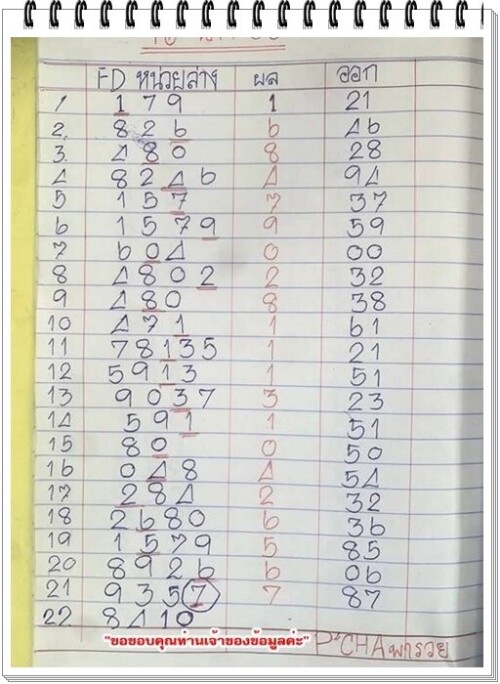 FD หน่วยล่าง ผล ออก
1 179 1 21
2. 826 6 46
3. 480 8 28
4 8246 4 94
5 157 7 37
6 1579 9 59
7 604 0 00
8 4802 2 32
9 480 8 38
10 471 1 61
11 78135 1 21
12 5913 1 51
13 9037 3 23
14 591 1 51
15 80 0 50
16 048 4 54
17 284 2 32
18 2680 6 36
19 1579 5 85
20 8926 6 06
21 9357 7 87
22 8410
"ขอขอบคุณท่านเจ้าของข้อมูลค่ะ" P'CHAพารวย